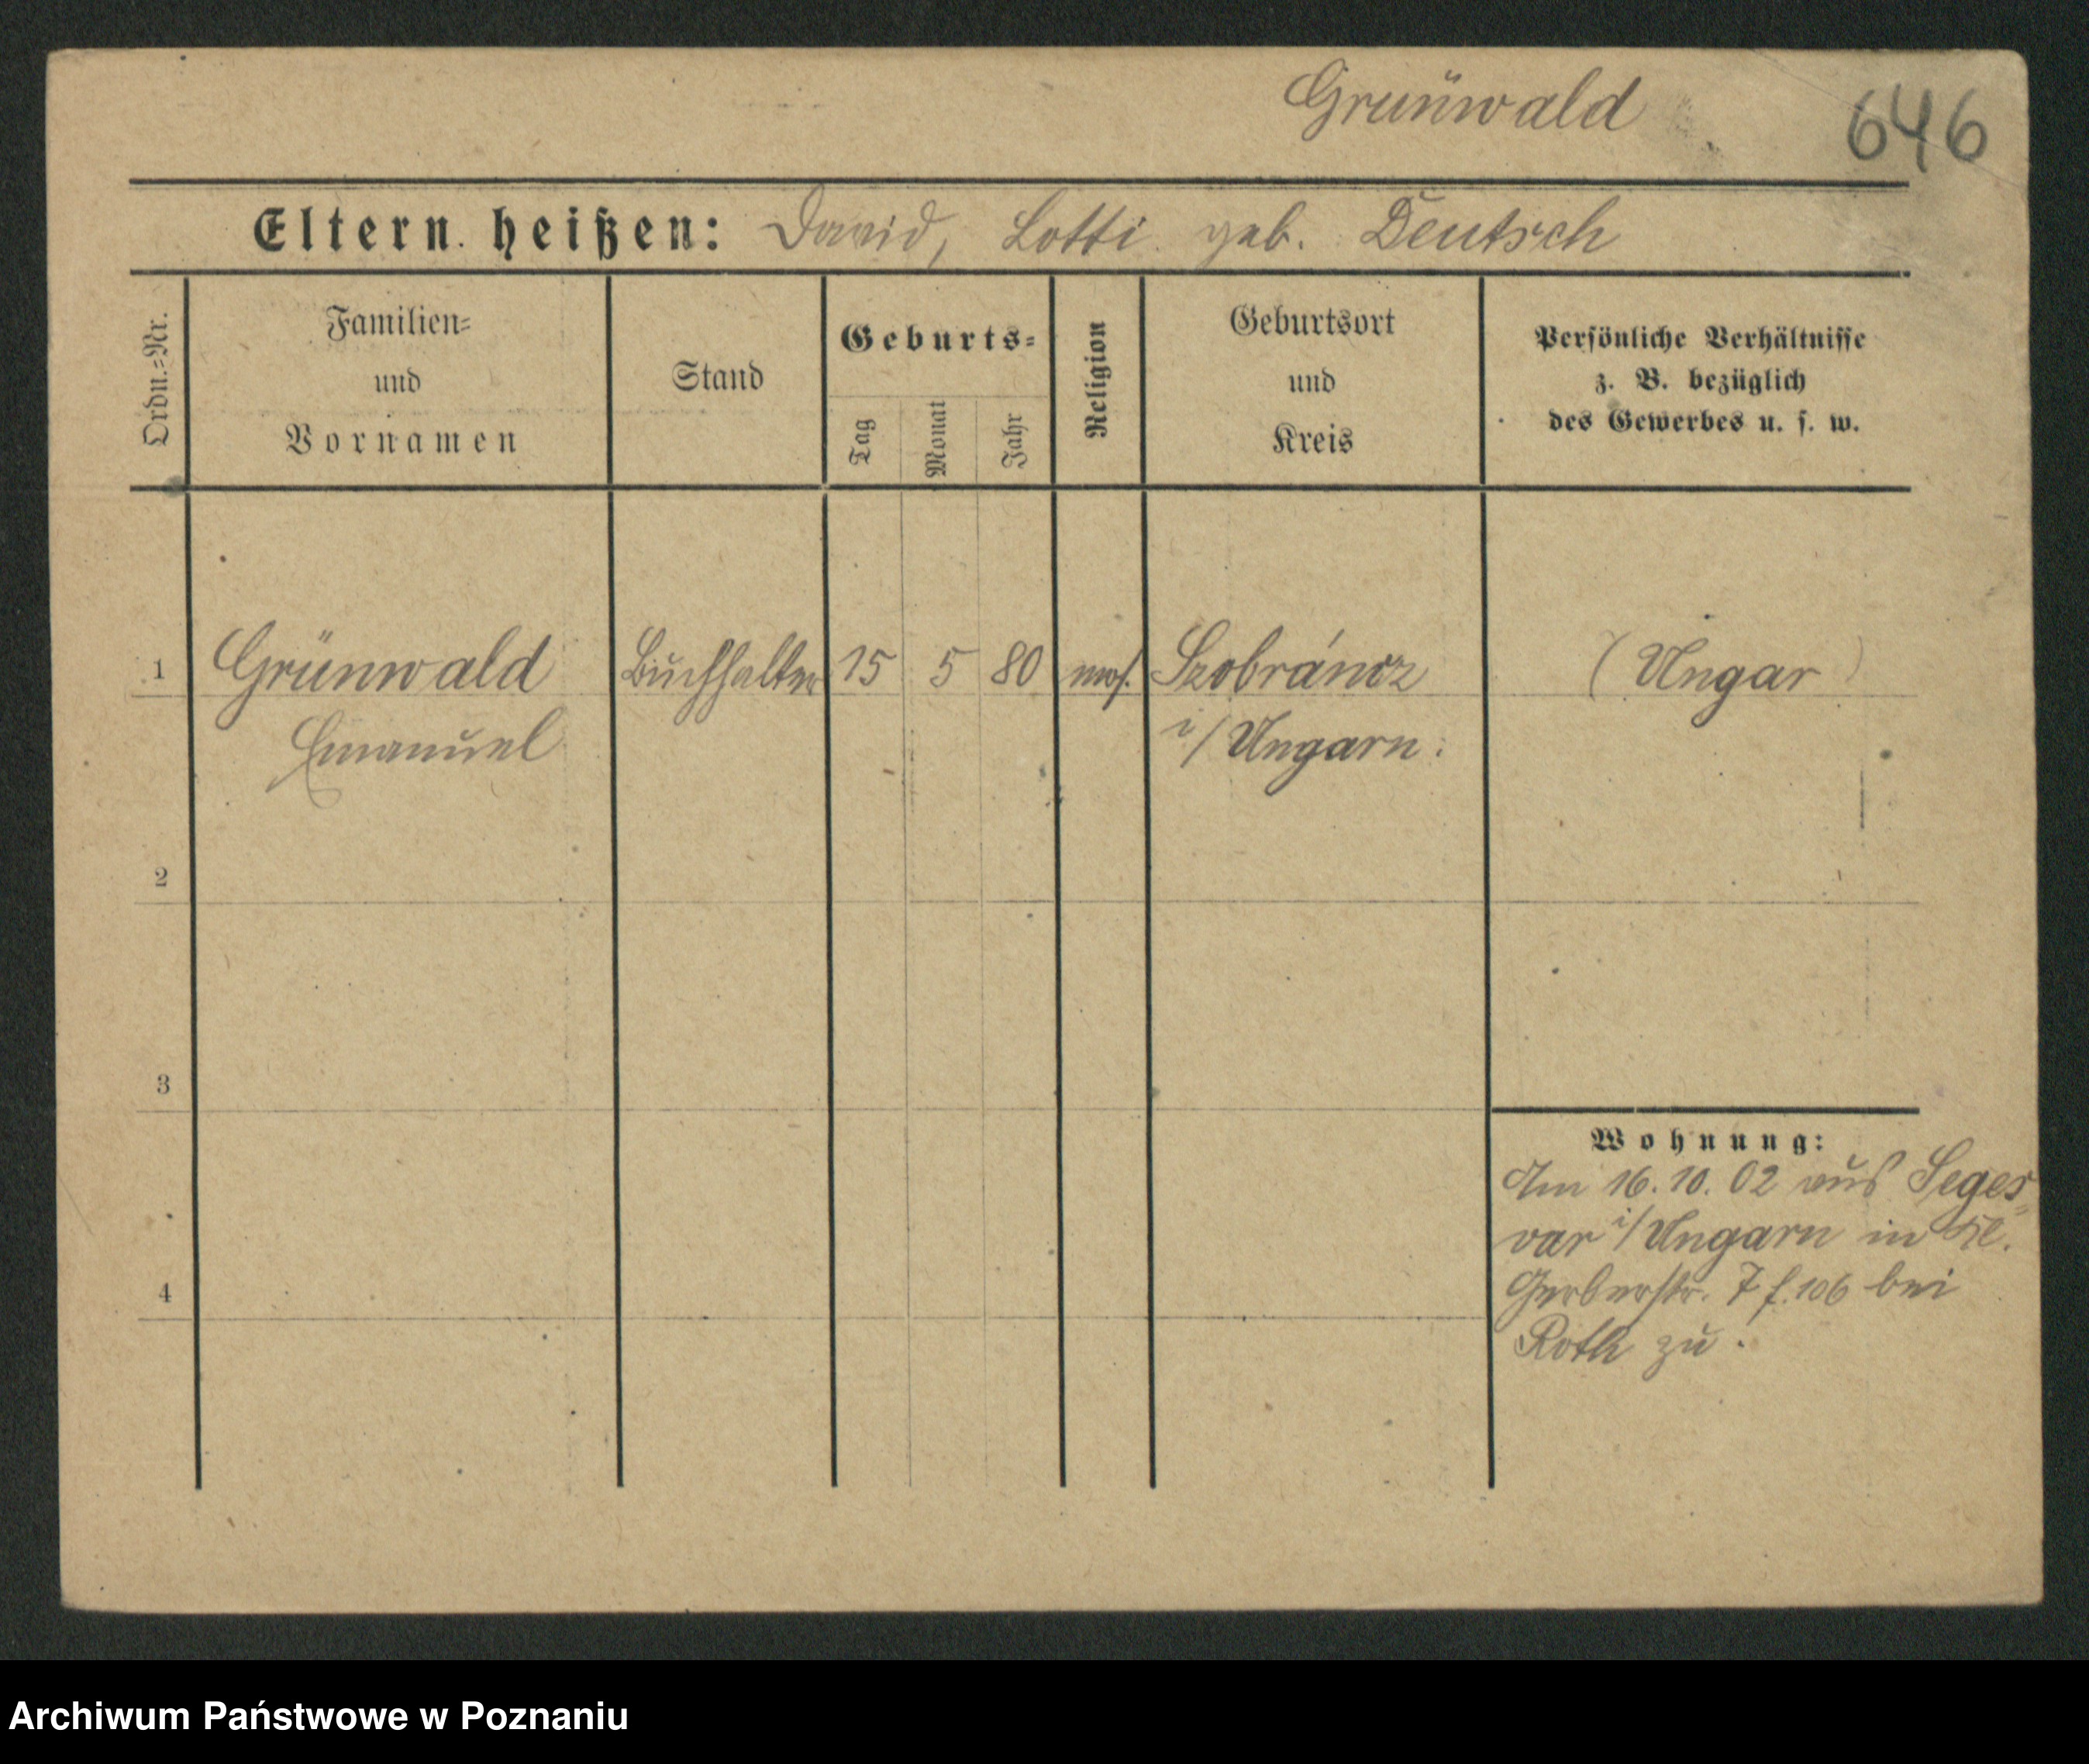 Grünwald
646
Eltern heißen: David, Lotti geb. Deutsch
Ordn.=Nr.
Familien=
und
Vornamen
Stand
Geburts=
Tag
Monat
Jahr
Religion
Geburtsort
und
Kreis
Persönliche Verhältnisse
z. B. bezüglich
des Gewerbes u. s. w.
1 Grünwald Buchhalter 15 5 80 mos. Szobráncz (Ungar)
Emanuel i/Ungarn.
2
3
4
Wohnung:
Am 16.10.02 aus Seges=
var i/Ungarn in Kl.
Gerberstr. 7 f. 106 bei
Roth zu.
Archiwum Państwowe w Poznaniu